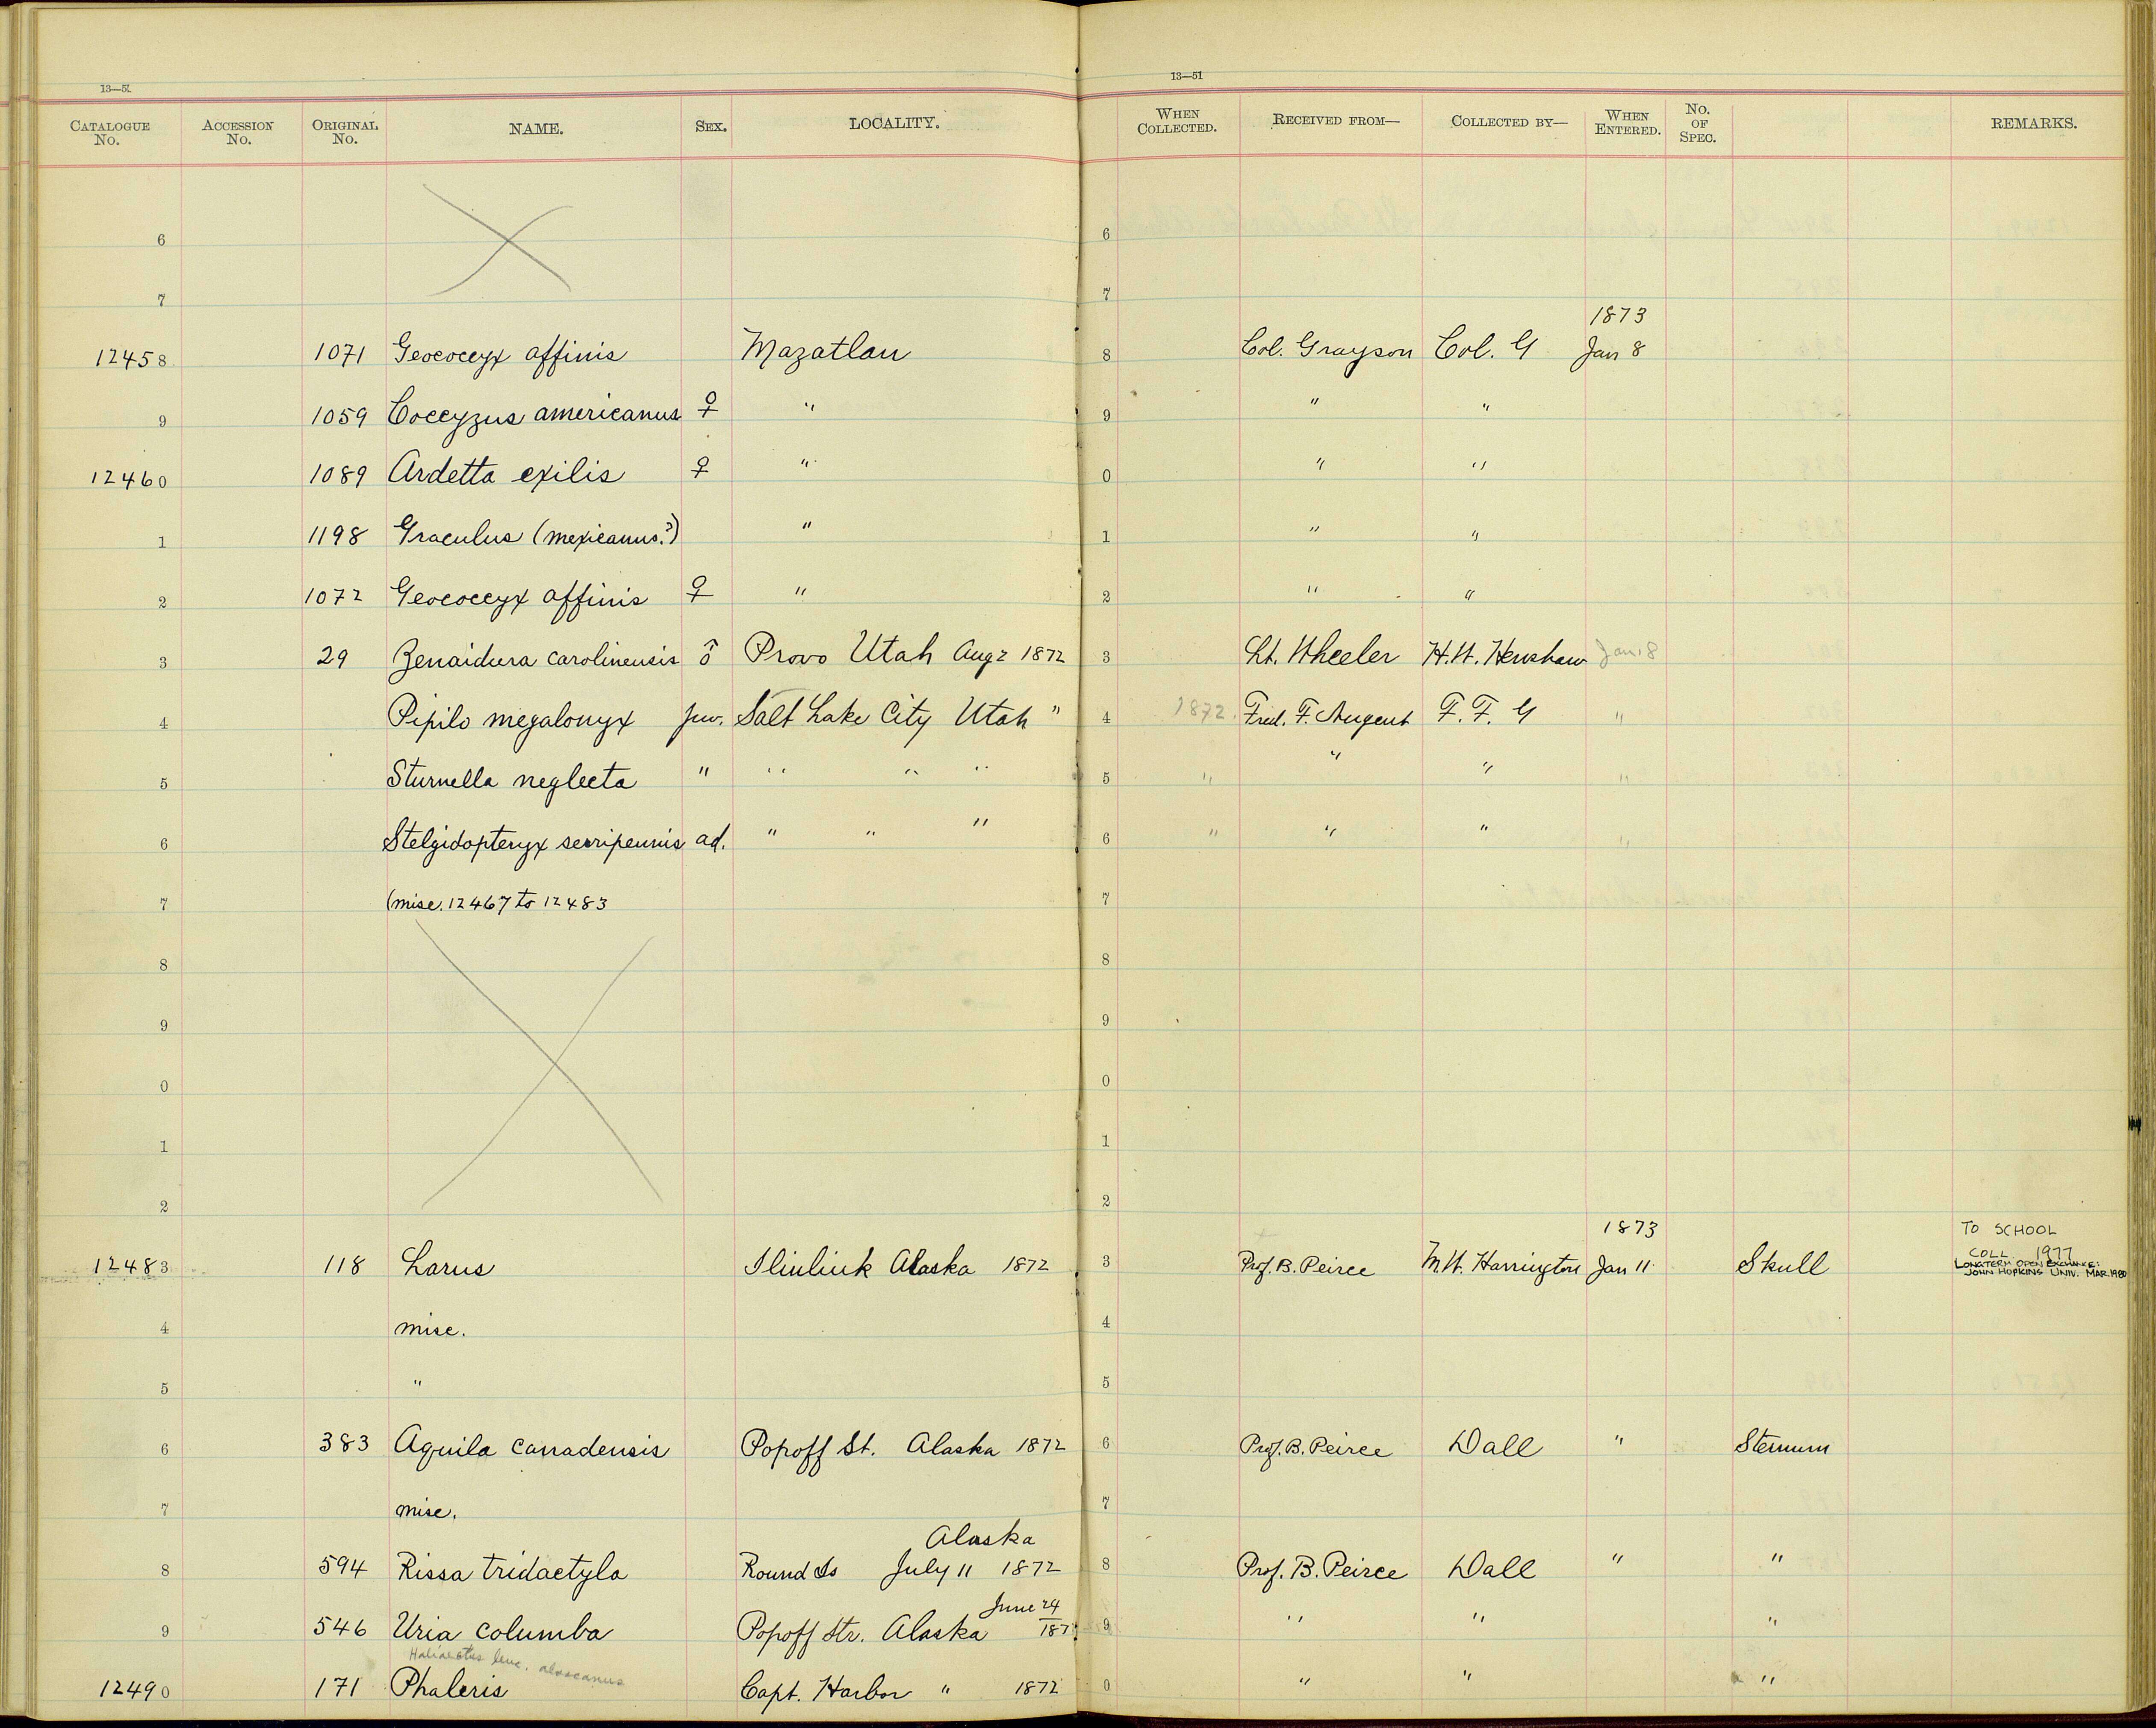 13—51
13—51
CATALOGUE No. ACCESSION No. ORIGINAL No. NAME. SEX. LOCALITY. WHEN COLLECTED. RECEIVED FROM— COLLECTED BY— WHEN ENTERED. No. OF SPEC. REMARKS.
6 6
7 7
1873
12458 1071 Geococcyx affinis Mazatlan 8 Col. Grayson Col. G Jan 8
9 1059 Coccyzus americanus ♀ " 9 " "
12460 1089 Ardetta exilis ♀ " 0 " "
1 1198 Graculus (mexicanus?) " 1 " "
2 1072 Geococcyx affinis ♀ " 2 " "
3 29 Zenaidura carolinensis Provo Utah Aug 2 1872 3 Lt. Wheeler H.W. Henshaw Jan. 8
4 Pipilo megalonyx juv. Salt Lake City Utah " 4 1872 Fred. F. F. F. G "
5 Sturnella neglecta " " " " 5 " " " "
6 Stelgidopteryx serripennis ad. " " " 6 " " " "
7 (misc. 12467 to 12483 7
8 8
9 9
0 0
1 1
2 2
1873
TO SCHOOL
COLL. 1977
12483 118 Larus Iliuliuk Alaska 1872 3 Prof. B. Peirce M.W. Harrington Jan 11 Skull LONGTERM OPEN EXCHANGE:
JOHN HOPKINS UNIV. MAR. 1980
4 misc. 4
5 " 5
6 383 Aquila canadensis Popoff St. Alaska 1872 6 Prof. B. Peirce Dall " Sternum
7 misc. 7
Alaska
8 594 Rissa tridactyla Round Is July 11 1872 8 Prof. B. Peirce Dall " "
June 24
9 546 Uria columba Popoff Str. Alaska 187 9 " " "
Haliaetus leuc. alascanus
12490 171 Phaleris Capt. Harbor " 1872 0 " " "